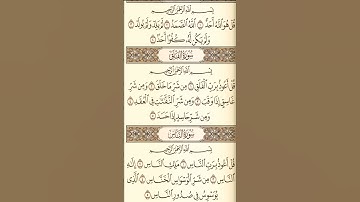 بِسْمِ اللَّهِ الرَّحْمَٰنِ الرَّحِيمِ
قُلْ هُوَ اللَّهُ أَحَدٌ ١ اللَّهُ الصَّمَدُ ٢ لَمْ يَلِدْ وَلَمْ يُولَدْ ٣
وَلَمْ يَكُن لَّهُ كُفُوًا أَحَدٌ ٤
سُورَةُ الْفَلَقِ
بِسْمِ اللَّهِ الرَّحْمَٰنِ الرَّحِيمِ
قُلْ أَعُوذُ بِرَبِّ الْفَلَقِ ١ مِن شَرِّ مَا خَلَقَ ٢ وَمِن شَرِّ
غَاسِقٍ إِذَا وَقَبَ ٣ وَمِن شَرِّ النَّفَّاثَاتِ فِي الْعُقَدِ ٤
وَمِن شَرِّ حَاسِدٍ إِذَا حَسَدَ ٥
سُورَةُ النَّاسِ
بِسْمِ اللَّهِ الرَّحْمَٰنِ الرَّحِيمِ
قُلْ أَعُوذُ بِرَبِّ النَّاسِ ١ مَلِكِ النَّاسِ ٢ إِلَٰهِ
النَّاسِ ٣ مِن شَرِّ الْوَسْوَاسِ الْخَنَّاسِ ٤ الَّذِي
يُوَسْوِسُ فِي صُدُورِ النَّاسِ ٥